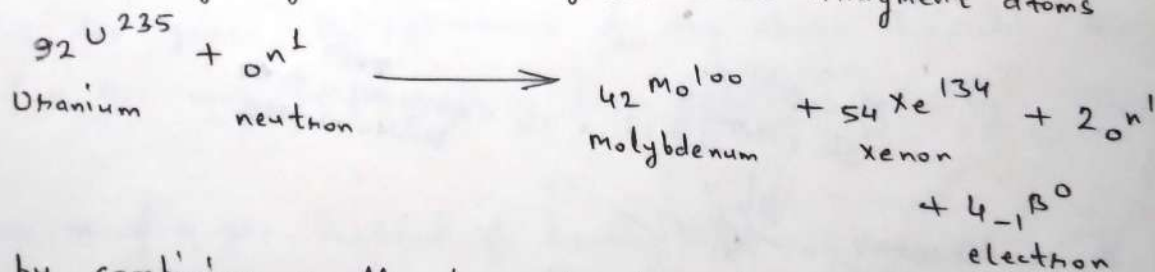 atoms
92 U 235 + 0 n 1 ⟶ 42 Mo 100 + 54 Xe 134 + 2 0 n 1
Uranium neutron molybdenum xenon
+ 4 -1 β 0
electron
by